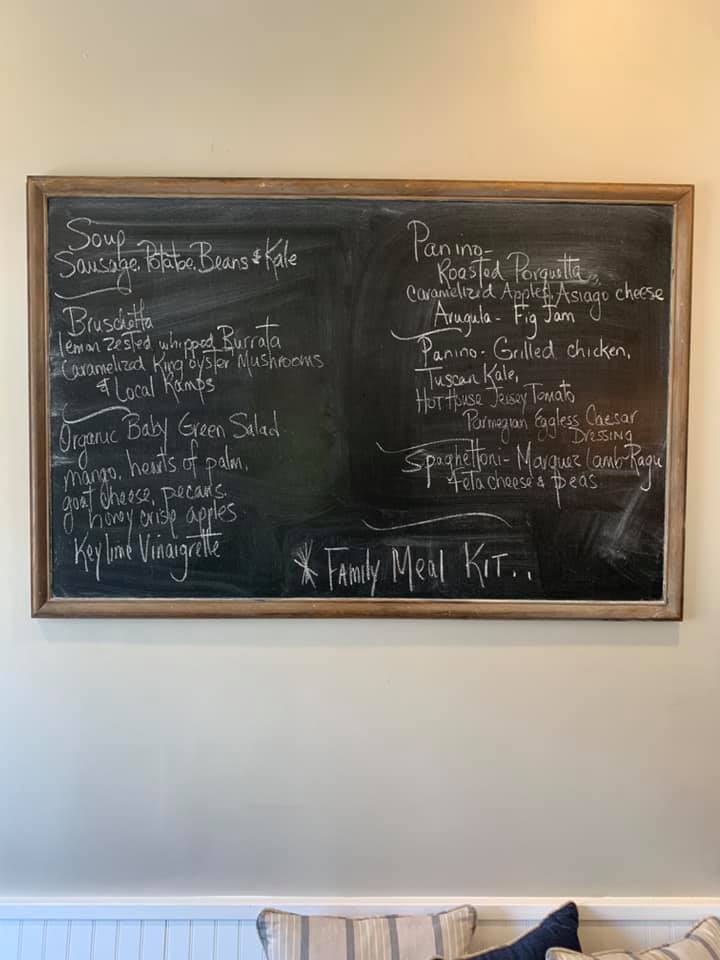 Soup
Sausage, Potatoe, Beans & Kale
Bruschetta
lemon zested whipped Burrata
Caramelized King oyster Mushrooms
& Local Ramps
Organic Baby Green Salad
mango, hearts of palm,
goat cheese, pecans,
honey crisp apples
Key lime Vinaigrette
Panino-
Roasted Porquetta
Caramelized Apples, Asiago cheese
Arugula - Fig Jam
Panino - Grilled chicken,
Tuscan Kale,
Hot House Jersey Tomato
Parmegian Eggless Caesar
Dressing
Spaghettoni - Marquez Lamb Ragu
feta cheese & peas
* Family Meal Kit..